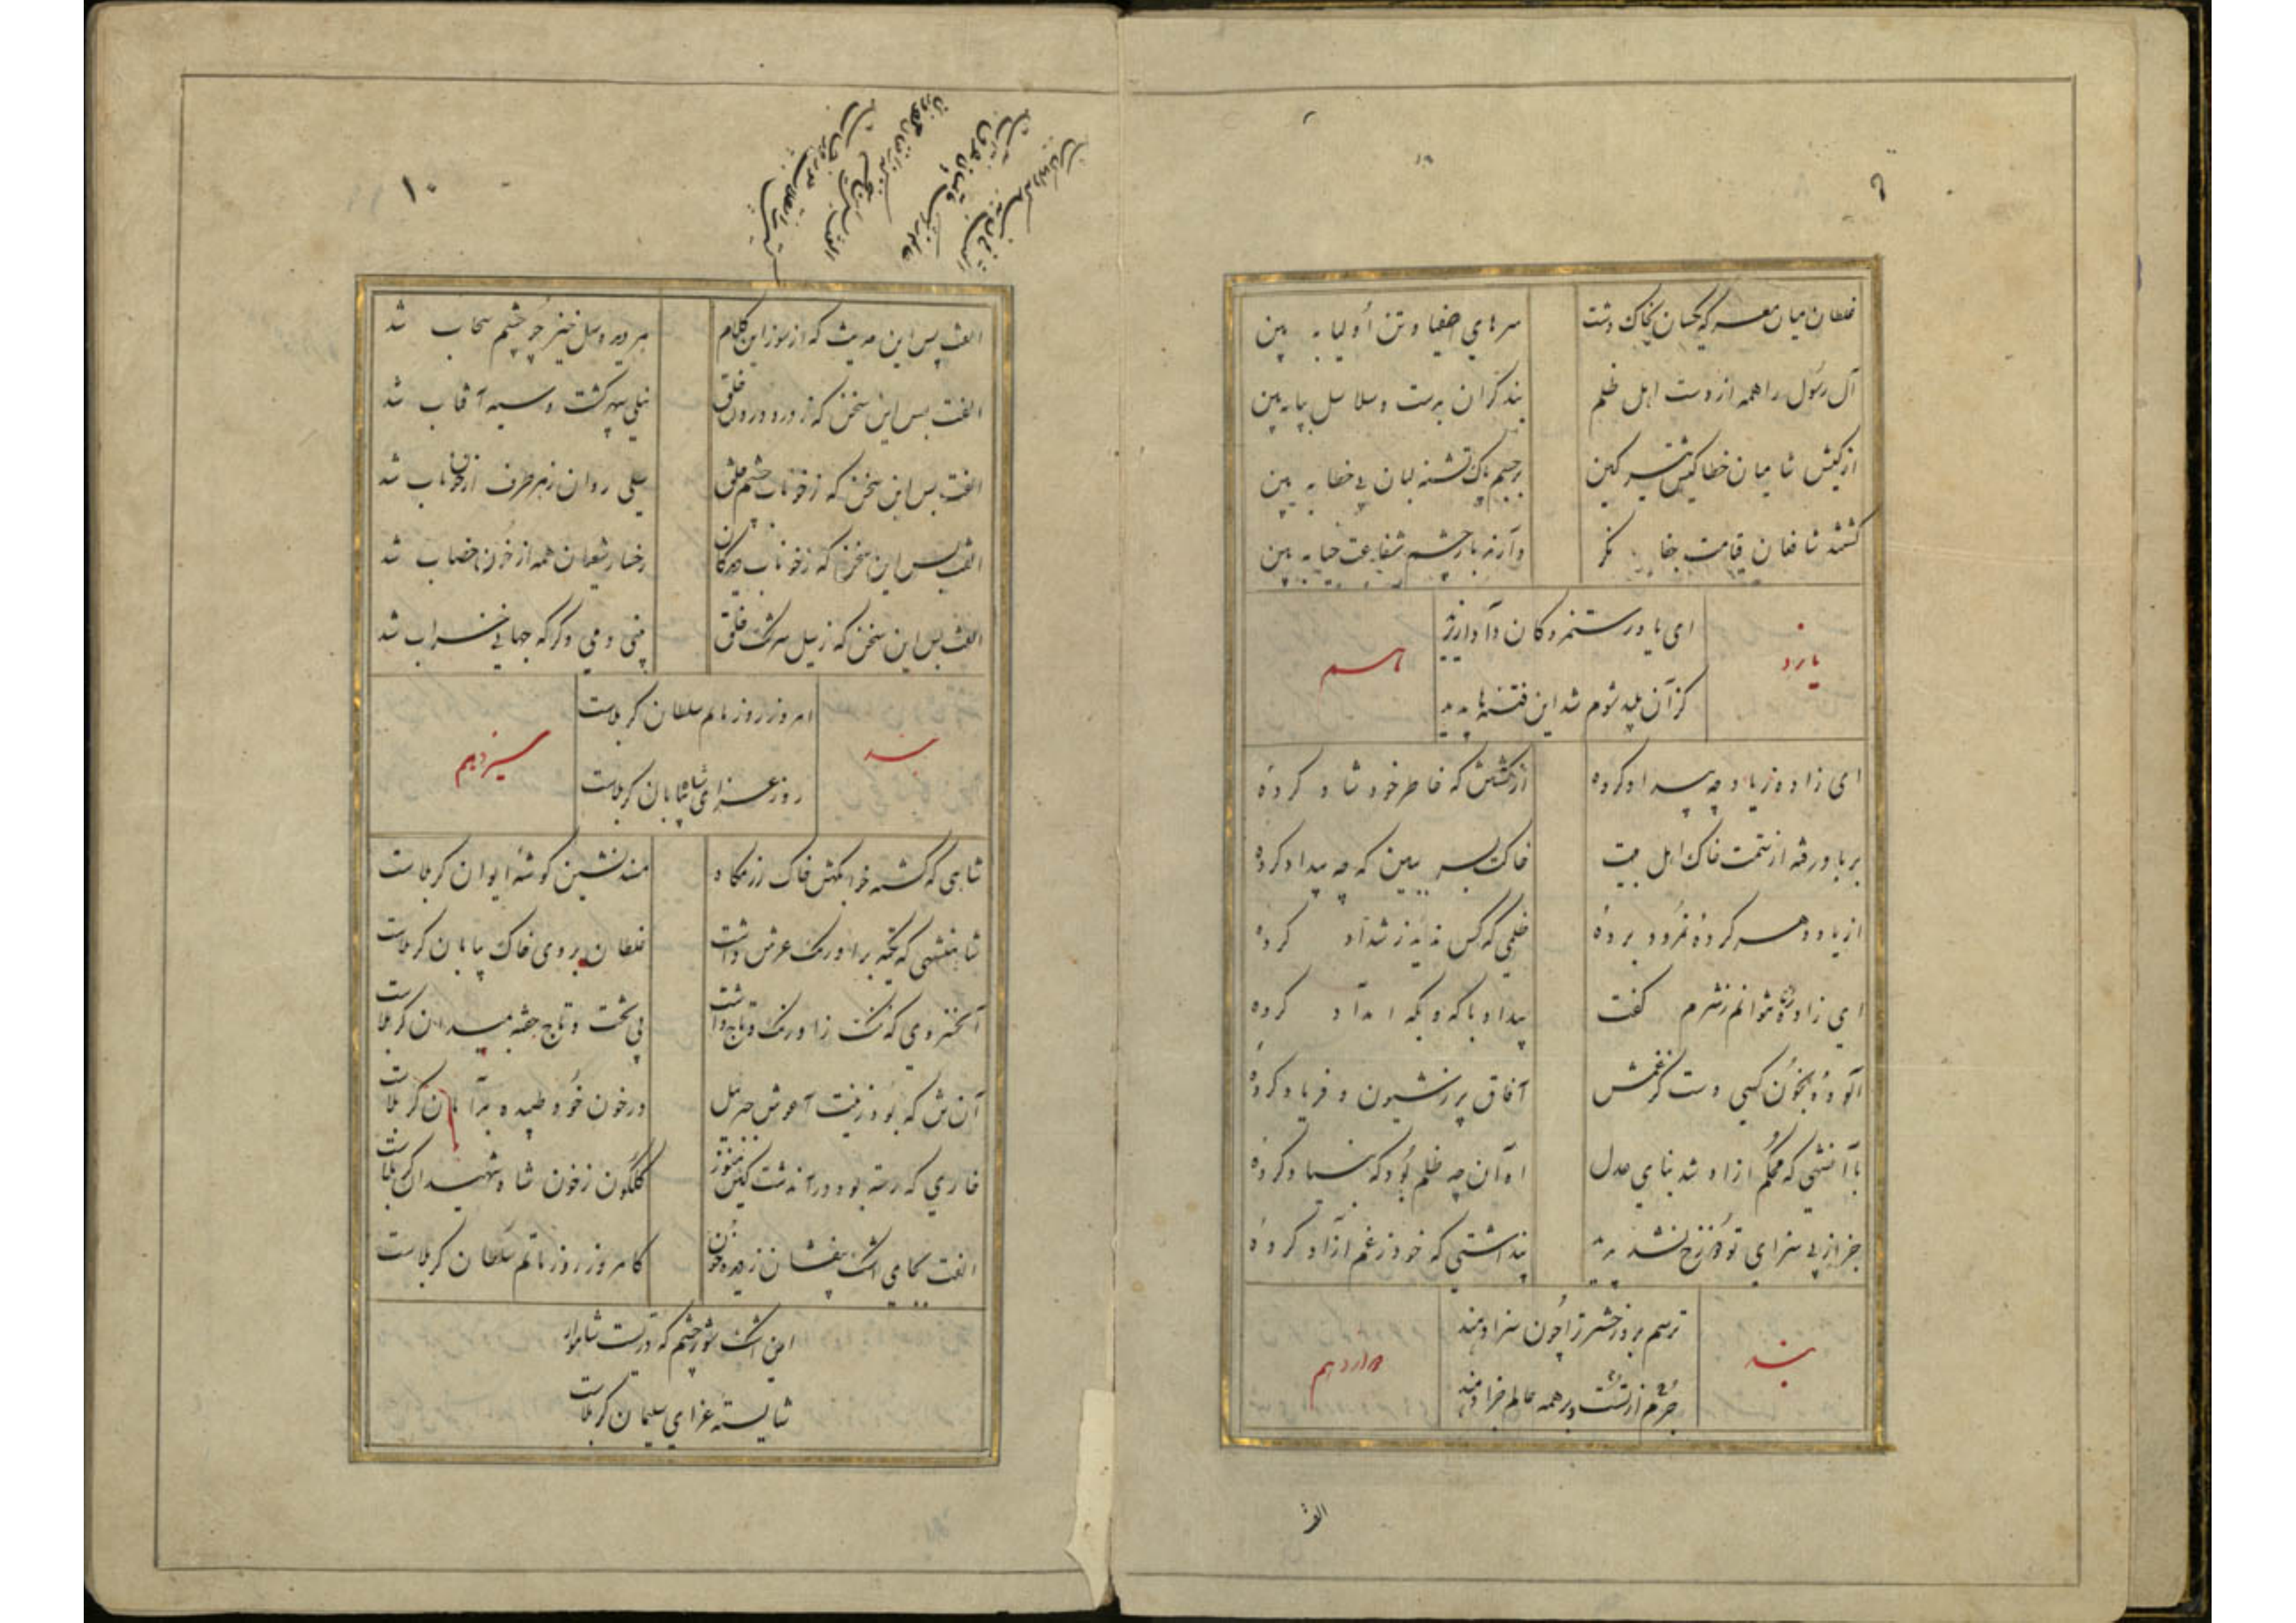 غلطان میان معرکه یکسان بخاک دشت
سرهای اصفیا و تن اولیا به بین
آل رسول را همه از دست اهل ظلم
بند گران بدست و سلاسل بپا به بین
از کیش شامیان خطا کیش تیر کین
بر جسم پاک تشنه لبان بی خطا به بین
کشتند شافعان قیامت جفا نگر
وآنکه باز چشم شفاعت به بین
ای یاور ستمزدگان
کز آن پلید شوم شد این فتنه‌ها پدید
ای زاده زیاد چه بیداد کرده
از کشتنش که خاطر خود شاد کرده
بر باد رفته از ستمت خاک اهل بیت
خاکت بسر ببین که چه بیداد کرده
از یاد هر کرده نمرود برده
ظلمی که کس ندیده ز شداد کرده
ای زاده نتوانم ز شرم گفت
بیداد با که و بکه امداد کرده
آلوده بخون کسی دست کز غمش
آفاق پر ز شیون و فریاد کرده
با آنشهی که محکم ازو شد بنای عدل
آه آن چه ظلم بود که بنیاد کرده
جز از پی سزای تو دوزخ نشد پدید
پنداشتی که خود ز غم آزاد کرده
بند
ترسم بروز حشر ترا چون سزا دهند
دوازدهم
جرم از تست و بر همه عالم جزا دهند
الفت
۱۰
الفت بس این حدیث که از سوز این کلام
هر دیده سیل خیز چو چشم سحاب شد
الفت بس این سخن که ز درد درون خلق
نیلی سپهر گشت و سیه آفتاب شد
الفت بس این سخن که ز خوناب چشم خلق
سیلی روان ز هر طرف از خون ناب شد
الفت بس این سخن که ز خوناب دیدگان
رخسار شیعیان همه از خون خضاب شد
الفت بس این سخن که ز سیل سرشک خلق
بینی دمی دگر که جهانی خراب شد
بند
امروز روز ماتم سلطان کربلاست
سیزدهم
روز عزای شاه بیابان کربلاست
شاهی که گشته خوابگهش خاک رزمگاه
مسند نشین گوشه ایوان کربلاست
شاهنشهی که تکیه بر اورنگ عرش داشت
غلطان بروی خاک بیابان کربلاست
آنخسروی که ننگ ز اورنگ و تاج داشت
بی تخت و تاج خفته میدان کربلاست
آن ش که بود زینت آغوش جبرئیل
در خون خود طپیده کربلاست
خاری که رسته بود در آندشت کین هنوز
گلگون ز خون شاه شهیدان کربلاست
الفت بجای اشک بیفشان ز دیده خون
کامروز روز ماتم سلطان کربلاست
این اشک شور چشم که دریست شاهوار
شایسته عزای سلیمان کربلاست